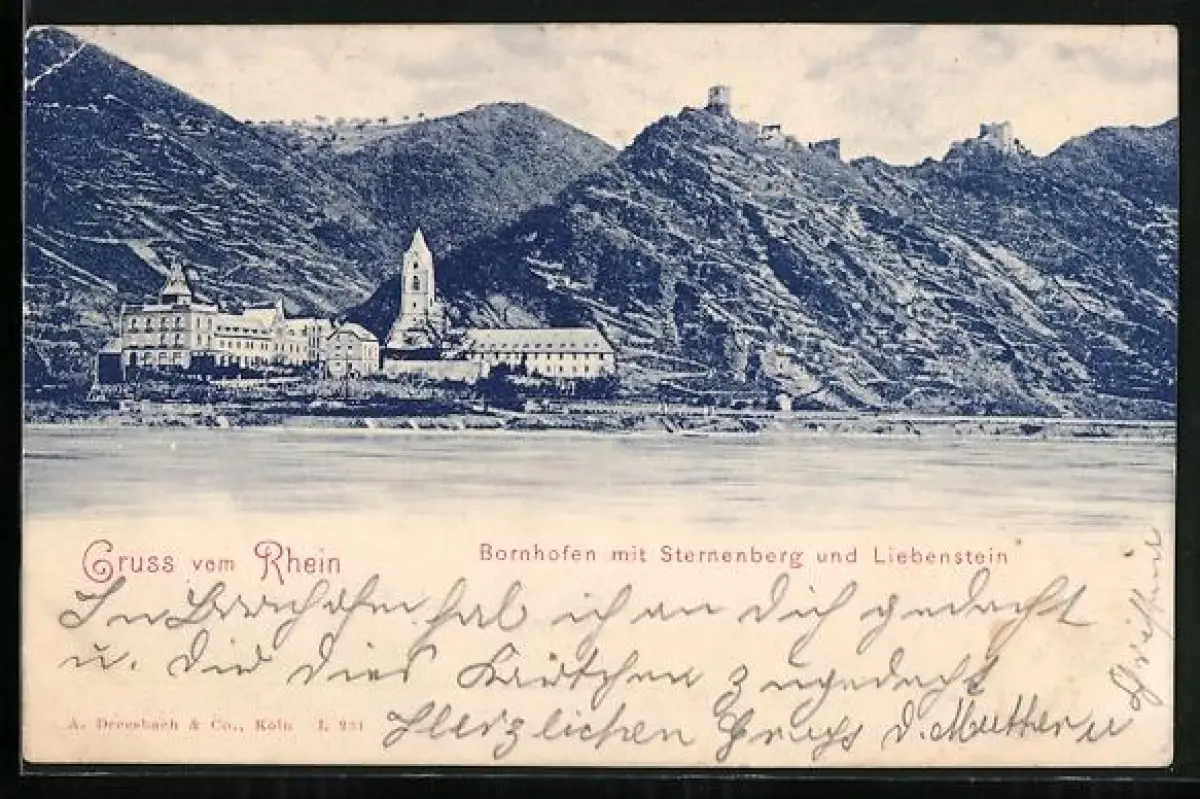 Gruss vom Rhein
Bornhofen mit Sternenberg und Liebenstein
In Bornhofen hab ich an Dich gedacht
u. Dir dies Kärtchen zugedacht
Herzlichen Gruss d. Mutter u
A. Dressbach & Co., Köln L 231